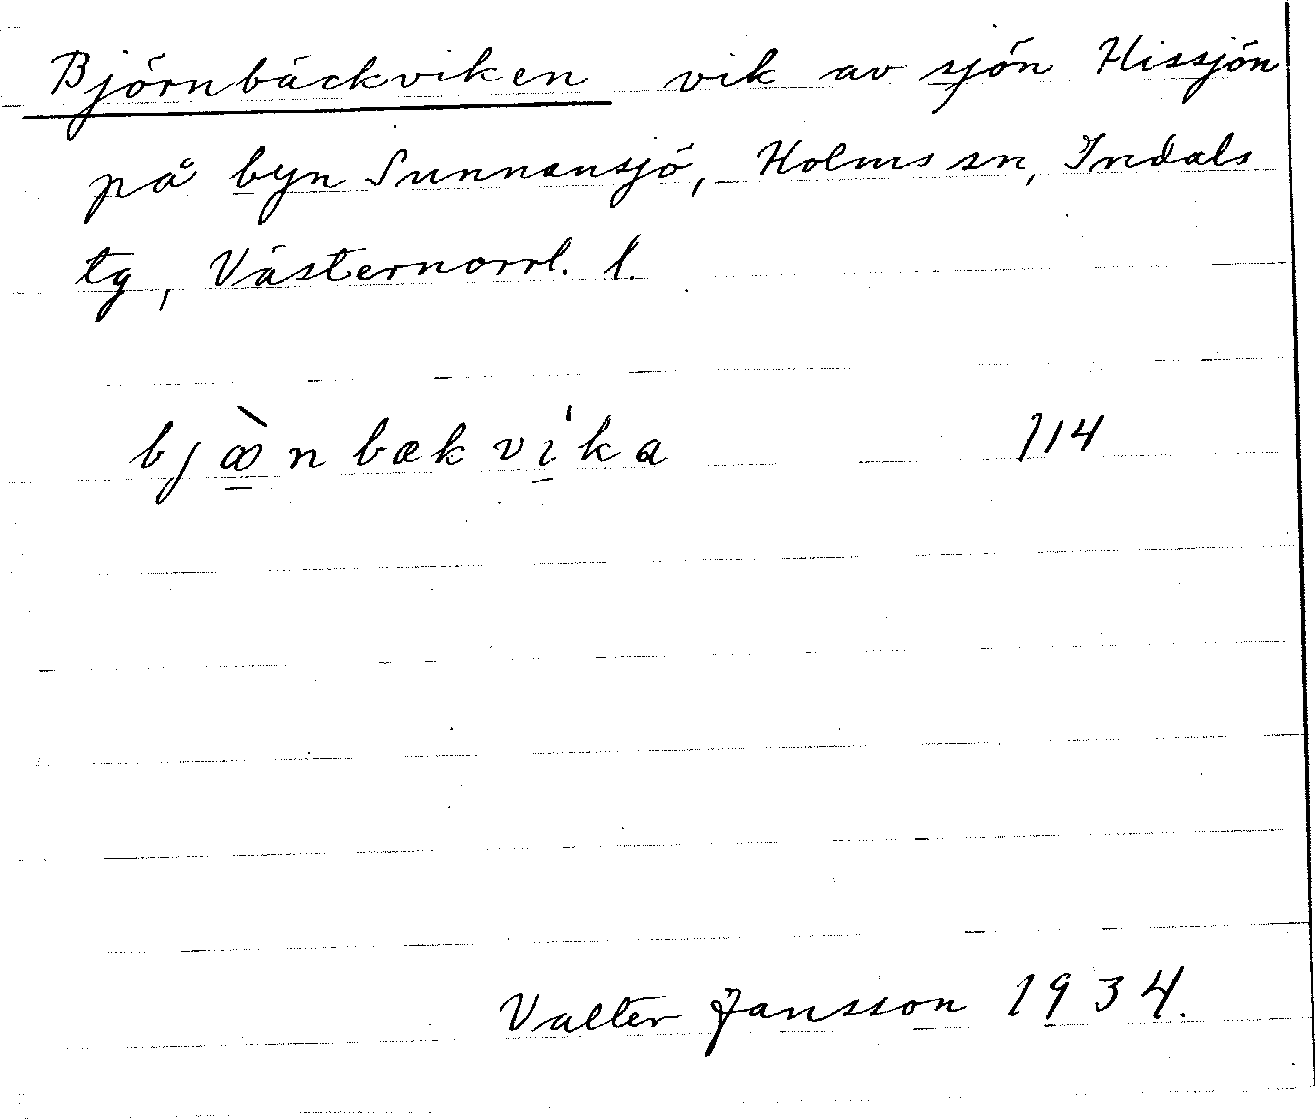 Björnbäckviken vik av sjön Hissjön
på byn Sunnansjö, Holms sn, Indals
tg, Västernorrl. l.
bjæ̀nbækvi'ka 114
Valter Jansson 1934.